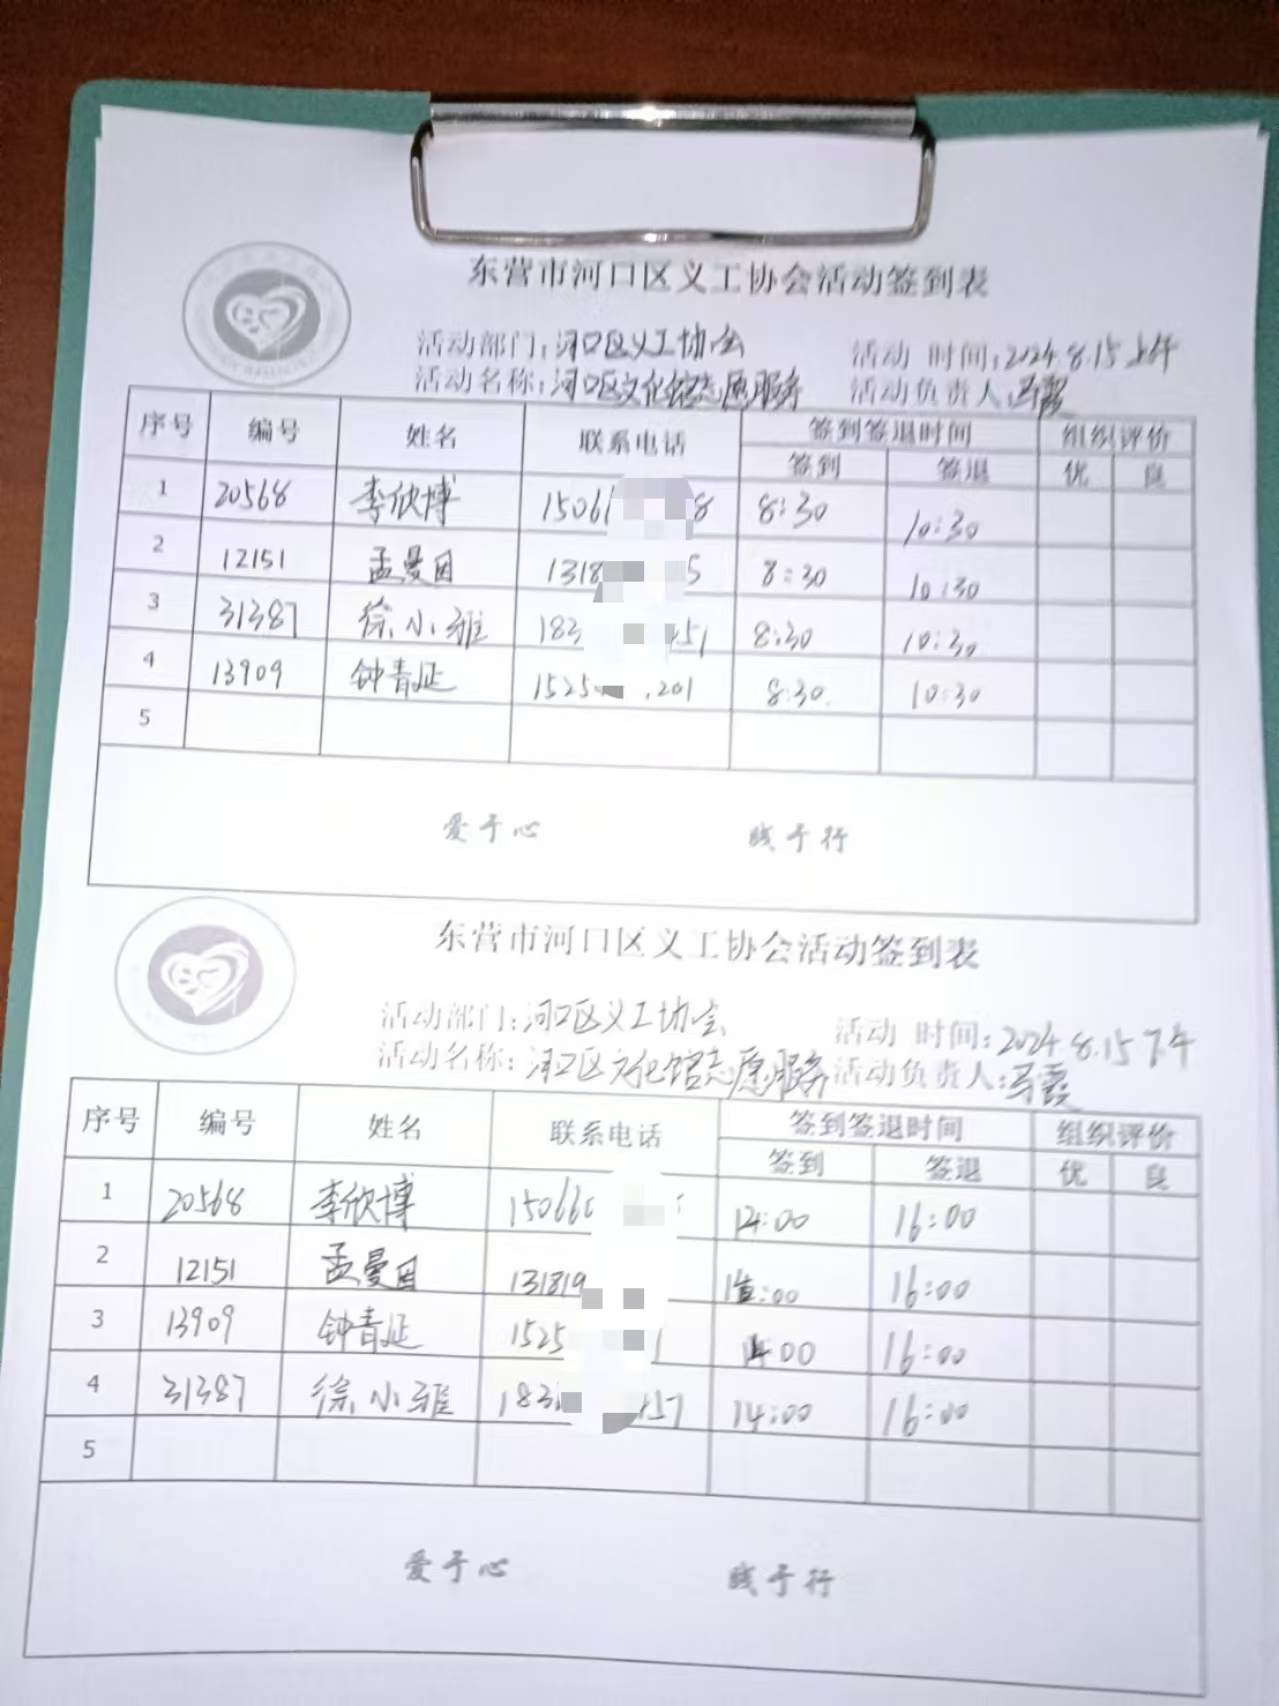 东营市河口区义工协会活动签到表
活动部门：河口区义工协会 活动 时间：2024.8.15上午
活动名称：河口区文化馆志愿服务 活动负责人：马霞
序号 编号 姓名 联系电话 签到签退时间 组织评价
签到 签退 优 良
1 20568 李欣博 1506 8 8:30 10:30
2 12151 孟曼因 1318 5 8:30 10:30
3 31387 徐小雅 183 51 8:30 10:30
4 13909 钟青延 1525 201 8:30 10:30
5
爱于心 践于行
东营市河口区义工协会活动签到表
活动部门：河口区义工协会 活动 时间：2024.8.15下午
活动名称：河口区文化馆志愿服务 活动负责人：马霞
序号 编号 姓名 联系电话 签到签退时间 组织评价
签到 签退 优 良
1 20568 李欣博 15066 14:00 16:00
2 12151 孟曼因 13181 14:00 16:00
3 13909 钟青延 1525 1 14:00 16:00
4 31387 徐小雅 183 57 14:00 16:00
5
爱于心 践于行